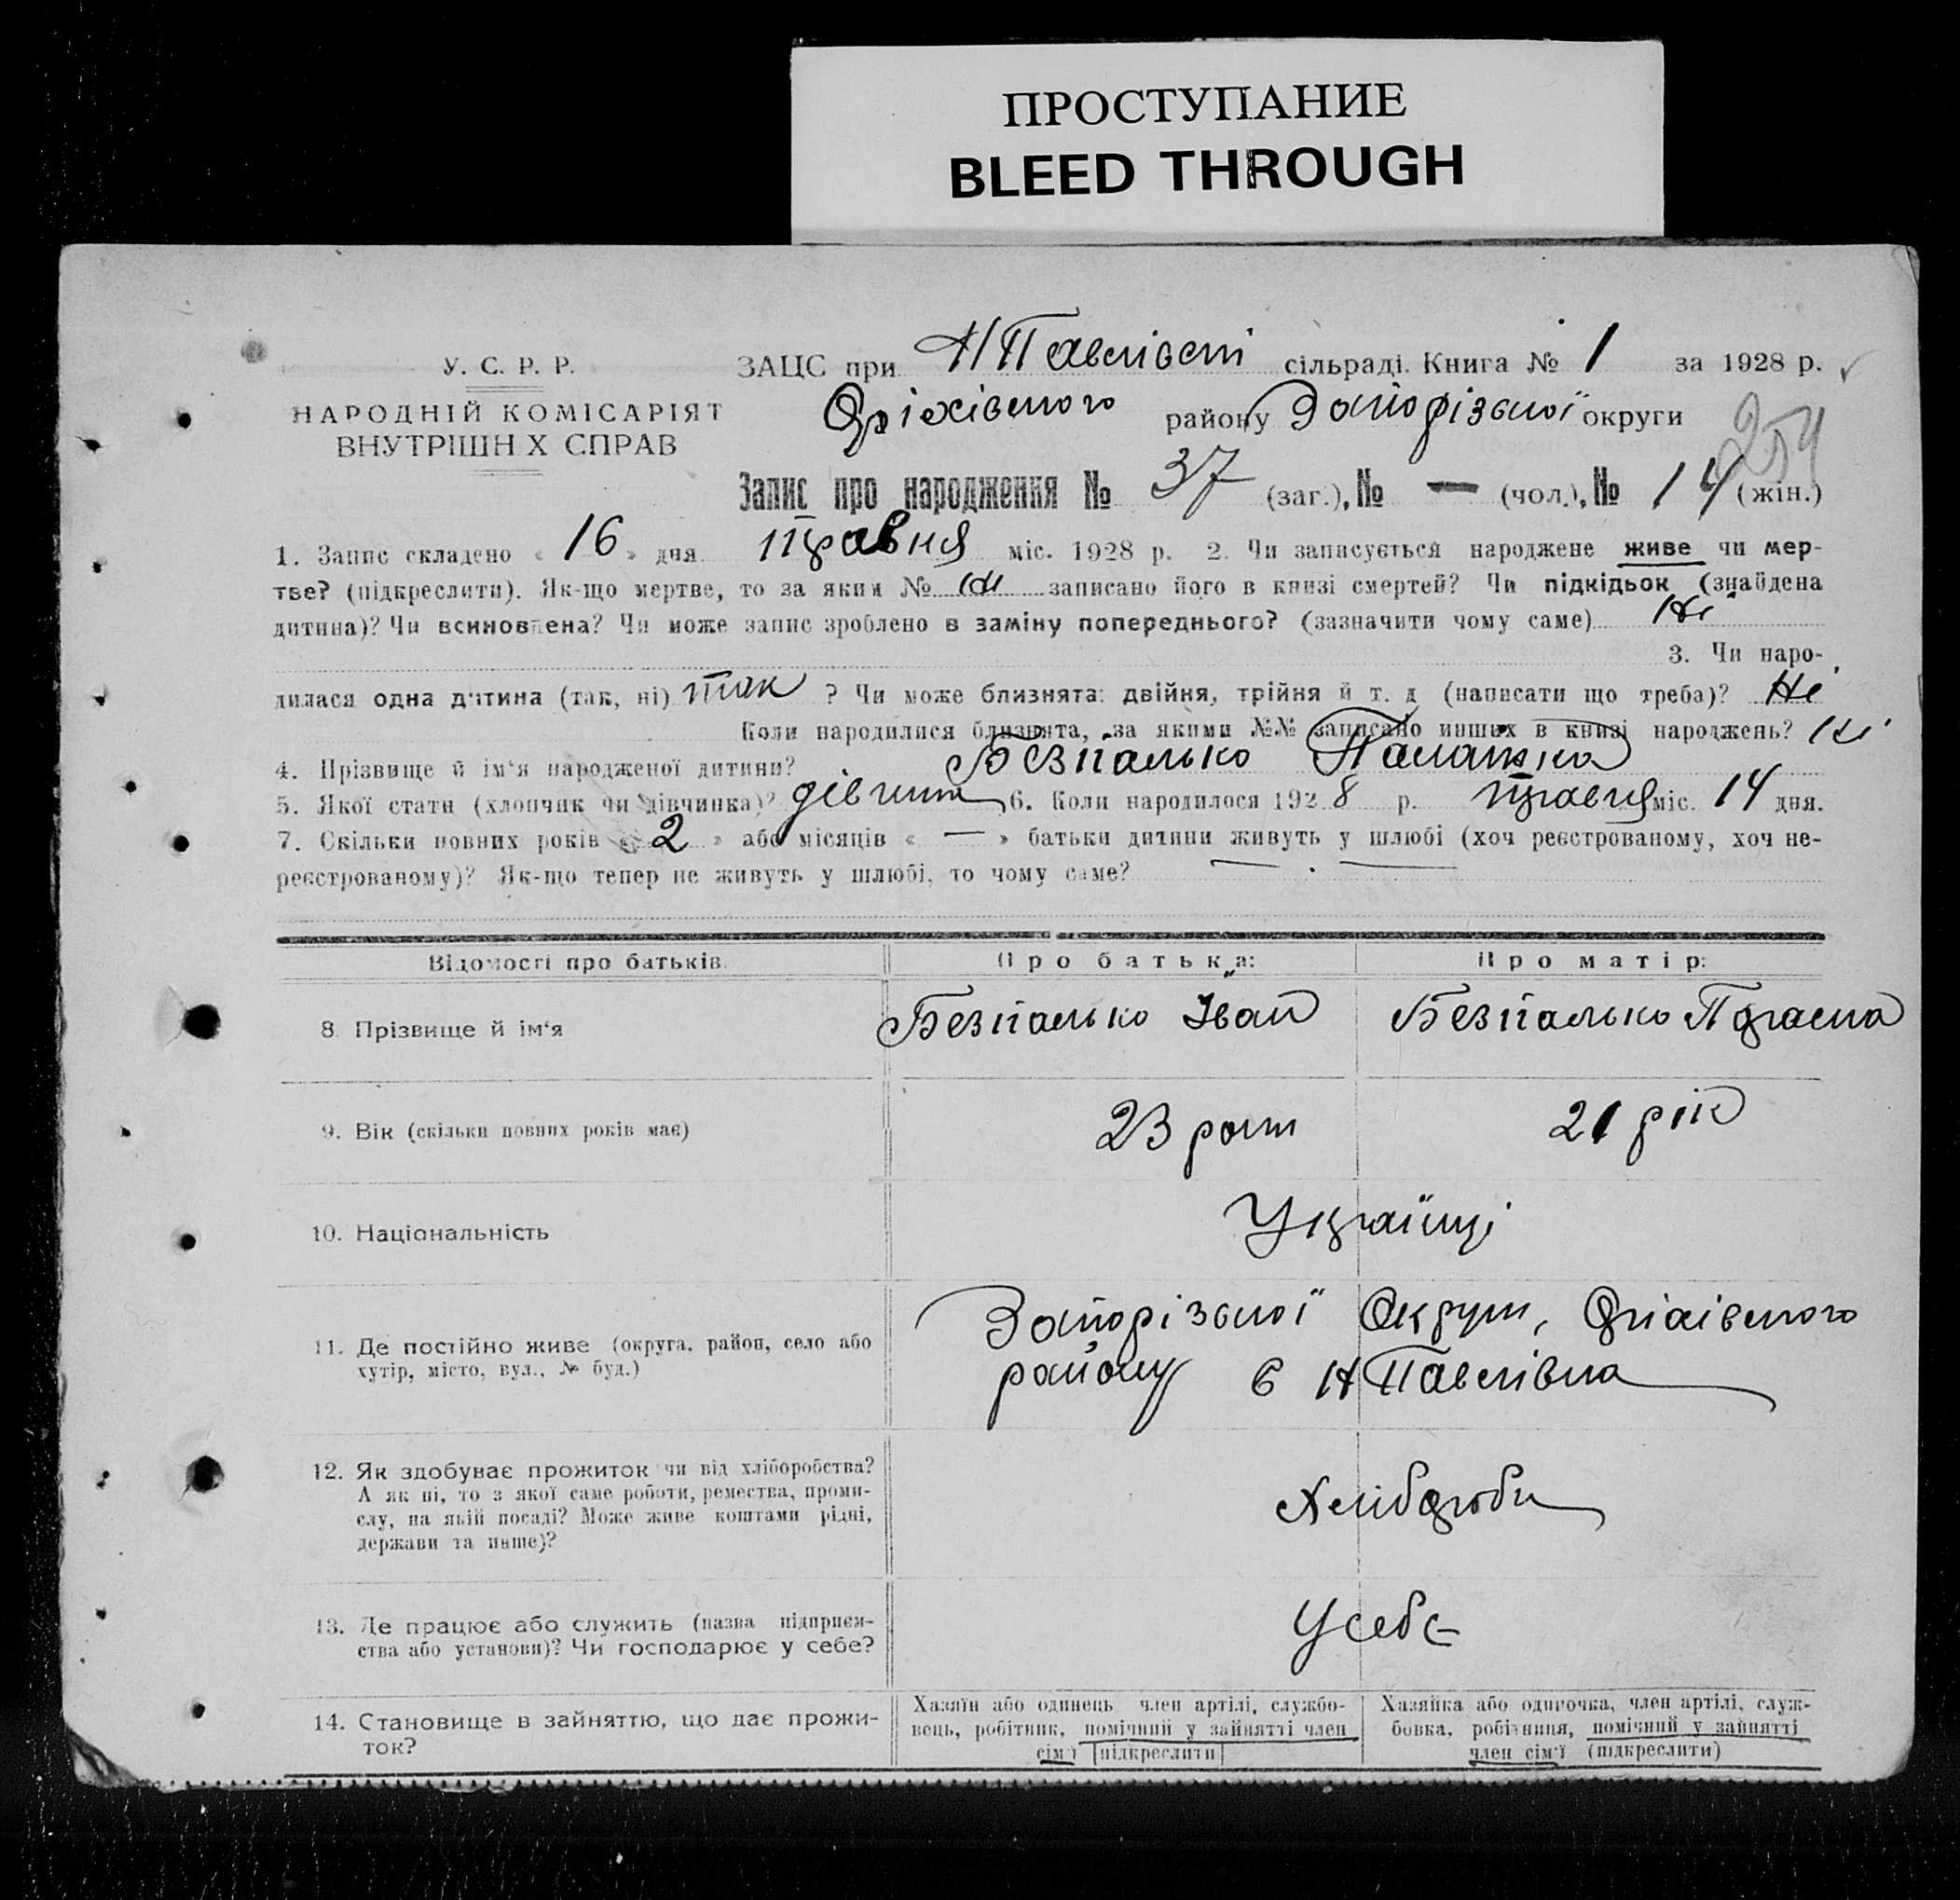 ПРОСТУПАНИЕ
BLEED THROUGH
У. С. Р. Р.
НАРОДНІЙ КОМІСАРІЯТ
ВНУТРІШН Х СПРАВ
ЗАЦС при Н Павлівсткі сільраді. Книга № 1 за 1928 р.
Оріхівського району Запорізської округи
254
Запис про народження № 37 (заг.), № — (чол.), № 14 (жін.)
1. Запис складено « 16 » дня травня міс. 1928 р. 2. Чи записується народжене живе чи мер-
тве? (підкреслити). Як-що мертве, то за яким № записано його в книзі смертей? Чи підкідьок (знайдена
дитина)? Чи всиновлена? Чи може запис зроблено в заміну попереднього? (зазначити чому саме) Ні
3. Чи наро-
дилася одна дитина (так, ні) так ? Чи може близнята: двійня, трійня й т. д (написати що треба)? Ні
Коли народилися близнята, за якими №№ записано инших в книзі народжень? Ні
4. Прізвище й ім'я народженої дитини? Безпалько Палажка
5. Якої стати (хлопчик чи дівчинка)? дівчина 6. Коли народилося 1928 р. травня міс. 14 дня.
7. Скільки повних років « 2 » або місяців « — » батьки дитини живуть у шлюбі (хоч реєстрованому, хоч не-
реєстрованому)? Як-що тепер не живуть у шлюбі, то чому саме? — . —
Відомості про батьків. Про батька: Про матір:
8. Прізвище й ім'я Безпалько Іван Безпалько Параска
9. Вік (скільки повних років має) 23 роки 21 рік
10. Національність Українці
11. Де постійно живе (округа, район, село або
хутір, місто, вул., № буд.)
Запорізської Округи, Оріхівського
району с Н Павлівка
12. Як здобуває прожиток чи від хліборобства?
А як ні, то з якої саме роботи, ремества, проми-
слу, на якій посаді? Може живе коштами рідні,
держави та инше)?
Хлібороби
13. Де працює або служить (назва підприєм-
ства або установи)? Чи господарює у себе?
Усебе
14. Становище в зайняттю, що дає прожи-
ток?
Хазяїн або одинець член артілі, службо-
вець, робітник, помічний у зайнятті член
сім'ї (підкреслити)
Хазяйка або одиночка, член артілі, служ-
бовка, робітниця, помічний у зайнятті
член сім'ї (підкреслити)